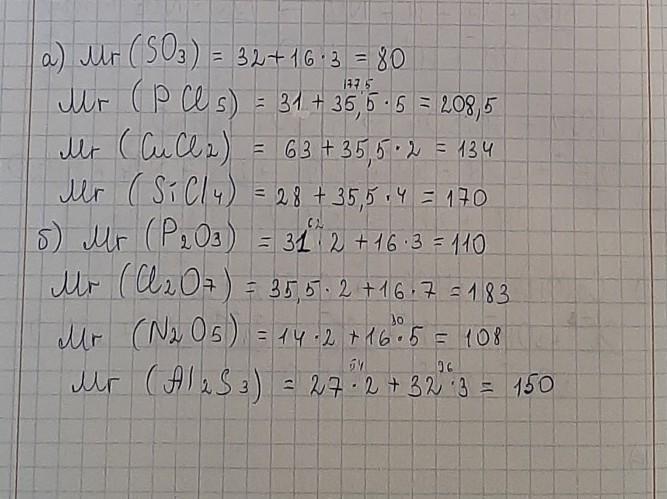 а) Mr (SO₃) = 32+16·3 = 80
177,5
Mr (PCl₅) = 31 + 35,5·5 = 208,5
Mr (CuCl₂) = 63 + 35,5·2 = 134
Mr (SiCl₄) = 28 + 35,5·4 = 170
62
б) Mr (P₂O₃) = 31·2 + 16·3 = 110
Mr (Cl₂O₇) = 35,5·2 + 16·7 = 183
30
Mr (N₂O₅) = 14·2 + 16·5 = 108
54 96
Mr (Al₂S₃) = 27·2 + 32·3 = 150